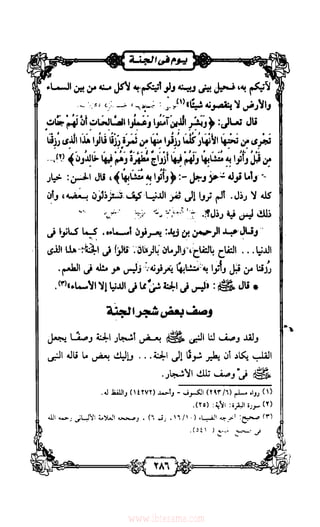 يوم فى الجنة
لآتيكم به، فحيل بينى وبينه ولو أتيتكم به لأكل منه من بين السماء
والأرض لا ينقصونه شيئًا»(١).
قال تعالى: ﴿وَبَشِّرِ الَّذِينَ آمَنُوا وَعَمِلُوا الصَّالِحَاتِ أَنَّ لَهُمْ جَنَّاتٍ
تَجْرِي مِن تَحْتِهَا الأَنْهَارُ كُلَّمَا رُزِقُوا مِنْهَا مِن ثَمَرَةٍ رِّزْقًا قَالُوا هَذَا الَّذِي رُزِقْنَا
مِن قَبْلُ وَأُتُوا بِهِ مُتَشَابِهًا وَلَهُمْ فِيهَا أَزْوَاجٌ مُّطَهَّرَةٌ وَهُمْ فِيهَا خَالِدُونَ﴾(٢).
- وأما قوله - عز وجل -: ﴿وَأُتُوا بِهِ مُتَشَابِهًا﴾، قال الحسن: خيار
كله لا رذل. ألم تروا إلى ثمر الدنيا كيف تسترذلون بعضه، وأن
ذلك ليس فيه رذل؟.
- وقال عبد الرحمن بن زيد: يعرفون أسماءه. كما كانوا فى
الدنيا... التفاح بالتفاح، والرمان بالرمان. قالوا فى الجنة: هذا الذى
رزقنا من قبل وأتوا به متشابهًا يعرفونه، وليس هو مثله فى الطعم.
* قال ﷺ: «ليس فى الجنة شىء مما فى الدنيا إلا الأسماء»(٣).
وصف بعض شجر الجنة
ولقد وصف لنا النبى ﷺ بعض أشجار الجنة وصفًا يجعل
القلب يكاد أن يطير شوقًا إلى الجنة... وإليك بعض ما قاله النبى
ﷺ فى وصف تلك الأشجار.
(١) رواه مسلم (٢٩٣/٦) الكسوف - وأحمد (١٤٢٧٢) واللفظ له.
(٢) سورة البقرة: الآية: (٢٥).
(٣) صحيح: أخرجه الضياء (١٦/١٠)، وصححه العلامة الألبانى رحمه الله
فى صحيح
٢٨٦
www.ibtesama.com